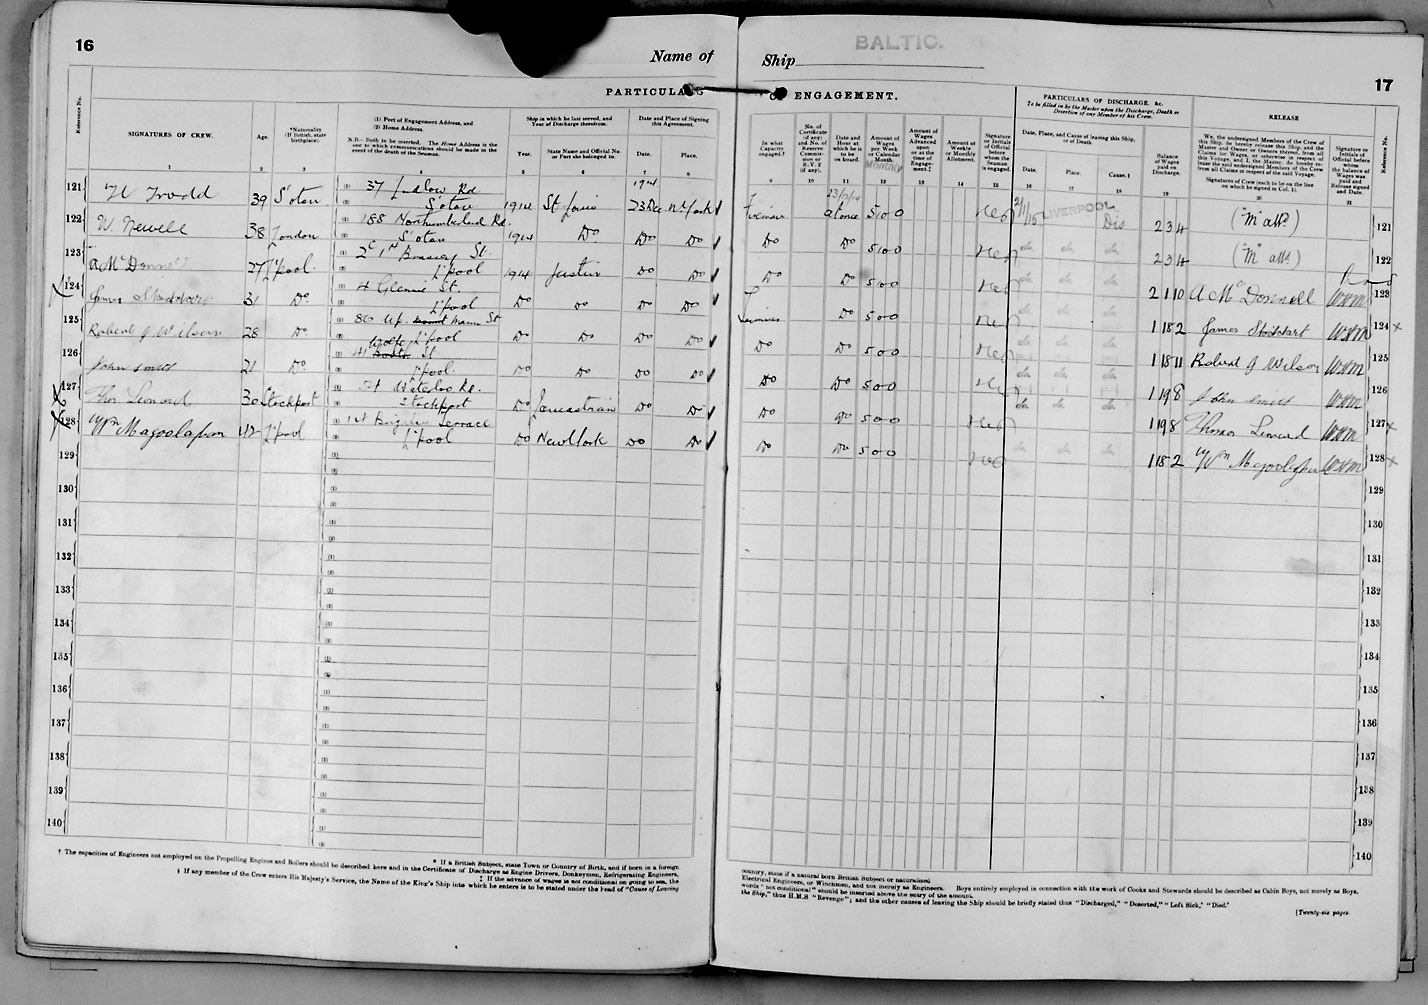 16
Name of
Ship
BALTIC.
17
PARTICULARS
OF ENGAGEMENT.
Reference No.
SIGNATURES OF CREW.
Age.
*Nationality
(If British, state
birthplace).
(1) Port of Engagement Address, and
(2) Home Address.
N.B.—Both to be inserted. The Home Address is the
one to which communications should be made in the
event of the death of the Seaman.
Ship in which he last served, and
Year of Discharge therefrom.
Year.
State Name and Official No.
or Port she belonged to.
Date and Place of Signing
this Agreement.
Date.
Place.
In what
Capacity
engaged.†
No. of
Certificate
(if any)
and No. of
Reserve
Commis-
sion or
R.V. 2
(if any).
Date and
Hour at
which he is
to be
on board.
Amount of
Wages
per Week
or Calendar
Month.
Monthly
Amount of
Wages
Advanced
upon
or at the
time of
Engage-
ment.‡
Amount of
Weekly
or Monthly
Allotment.
Signature
or Initials
of Official
before
whom the
Seaman
is engaged.
PARTICULARS OF DISCHARGE, &c.
To be filled in by the Master upon the Discharge, Death or
Desertion of any Member of his Crew.
Date, Place, and Cause of leaving this Ship,
or of Death.
Date.
Place.
Cause.§
Balance
of Wages
paid on
Discharge.
RELEASE
We, the undersigned Members of the Crew of
this Ship, do hereby release this Ship, and the
Master and Owner or Owners thereof, from all
Claims for Wages, or otherwise in respect of
this Voyage, and I, the Master, do hereby re-
lease the said undersigned Members of the Crew
from all Claims in respect of the said Voyage.
Signatures of Crew (each to be on the line
on which he signed in Col. 1).
Signature or
Initials of
Official before
whom
the balance of
Wages was
paid and
Release signed
and Date.
Reference No.
1 2 3 4 5 6 7 8 9 10 11 12 13 14 15 16 17 18 19 20 21
1914
121 39 S'oton (1) 37 Ludlow Rd
(2) S'oton 1914 St Louis 23 Dec N. York Fireman at once 5 0 0 2/1/15 LIVERPOOL Dis 2 3 4 ("M" att) 121
122 W. Newell 38 London (1) 188 Northumberland Rd.
(2) S'oton 1914 Do Do Do Do Do 5 0 0 do do do 2 3 4 ("M" att) 122
123 A McDonnell 27 L'pool (1) Brassey St.
(2) L'pool 1914 Justin Do Do Do Do 5 0 0 do do do 2 11 0 A McDonnell 123
124 James Stoddart 31 Do (1) 4 Glennie St.
(2) L'pool Do Do Do Do Do 5 0 0 do do do 1 18 2 James Stoddart 124 x
125 Robert J Wilson 28 Do (1)
(2) L'pool Do Do Do Do Do Do 5 0 0 do do do 1 18 11 Robert J Wilson 125
126 John Smith 21 Do (1) St
(2) L'pool Do Do Do Do Do Do 5 0 0 do do do 1 19 8 John Smith 126
127 Thos Leonard 30 Stockport (1) Waterloo Rd.
(2) Stockport Do Lancastrian Do Do Do Do 5 0 0 do do do 1 19 8 Thomas Leonard 127 x
128 42 L'pool (1) Terrace
(2) L'pool Do New York Do Do Do Do 5 0 0 do do do 1 18 2 128 x
129 (1) (2) 129
130 (1) (2) 130
131 (1) (2) 131
132 (1) (2) 132
133 (1) (2) 133
134 (1) (2) 134
135 (1) (2) 135
136 (1) (2) 136
137 (1) (2) 137
138 (1) (2) 138
139 (1) (2) 139
140 (1) (2) 140
* If a British Subject, state Town or Country of Birth, and if born in a foreign
country, state if a natural born British Subject or naturalised
† The capacities of Engineers not employed on the Propelling Engines and Boilers should be described here and in the Certificate of Discharge as Engine Drivers, Donkeymen, Refrigerating Engineers,
Electrical Engineers, or Winchmen, and not merely as Engineers. Boys entirely employed in connection with the work of Cooks and Stewards should be described as Cabin Boys, not merely as Boys,
‡ If the advance of wages is not conditional on going to sea, the
words "not conditional" should be inserted above the entry of the amount.
§ If any member of the Crew enters His Majesty's Service, the Name of the King's Ship into which he enters is to be stated under the head of "Cause of Leaving
the Ship," thus H.M.S "Revenge"; and the other causes of leaving the Ship should be briefly stated thus "Discharged," "Deserted," "Left Sick," "Died."
[Twenty-six pages.